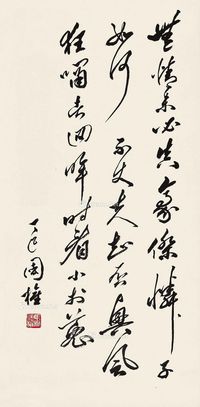 無情未必真豪傑憐子
如何不丈夫知否興風
狂嘯者迴眸時看小於菟